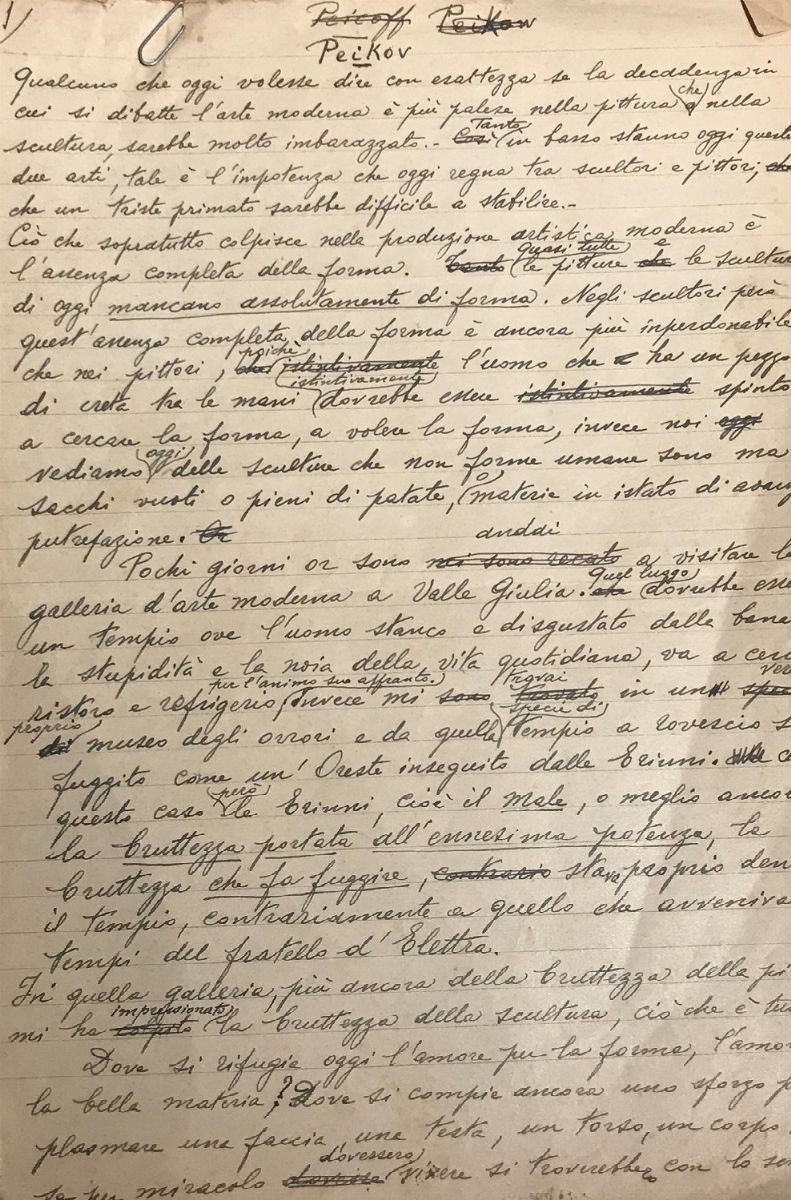 1)
Peicoff Peikow
Peikov
Qualcuno che oggi volesse dire con esattezza se la decadenza in
cui si dibatte l'arte moderna è più palese nella pittura che nella
scultura, sarebbe molto imbarazzato.- Così Tanto in basso stanno oggi queste
due arti, tale è l'impotenza che oggi regna tra scultori e pittori, che
che un triste primato sarebbe difficile a stabilire.-
Ciò che sopratutto colpisce nella produzione artistica moderna è
l'assenza completa della forma. Tanto quasi tutte le pitture che e le scultur
di oggi mancano assolutamente di forma. Negli scultori però
quest'assenza completa della forma è ancora più imperdonabile
che nei pittori, che poichè istintivamente l'uomo che ha un pezzo
di creta tra le mani istintivamente dovrebbe essere istintivamente spinto
a cercare la forma, a volere la forma, invece noi oggi
vediamo oggi delle sculture che non forme umane sono ma
sacchi vuoti o pieni di patate, o materie in istato di avanz
putrefazione. Or
Pochi giorni or sono mi sono recato anddi a visitare la
galleria d'arte moderna a Valle Giulia. che Quel luogo dovrebbe esse
un tempio ove l'uomo stanco e disgustato dalla bana
la stupidità e la noia della vita quotidiana, va a cerc
ristoro e refrigerio per l'animo suo affranto. Invece mi sono trovato trovai in un spec ver
proprio di museo degli orrori e da quella specie di tempio a rovescio s
fuggito come un' Oreste inseguito dalle Erinni.
questo caso però le Erinni, cioè il male, o meglio ancor
la bruttezza portata all'ennesima potenza, la
bruttezza che fa fuggire, contrario stava proprio den
il tempio, contrariamente a quello che avveniva
tempi del fratello d' Elettra.
In quella galleria, più ancora della bruttezza della pi
mi ha colpito impressionato la bruttezza della scultura, ciò che è tu
Dove si rifugia oggi l'amore per la forma, l'amor
la bella materia,? Dove si compie ancora uno sforzo p
plasmare una faccia, una testa, un torso, un corpo
se per miracolo dovesse dovessero vivere si troverebbe con lo